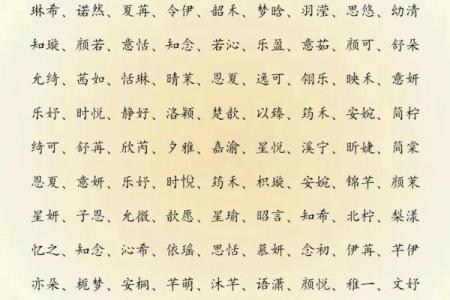 琳希、诺然、夏苒、令伊、韶禾、梦晗、羽滢、思悠、幼清
知璇、颜若、意恬、知念、若沁、乐盈、意茹、颜可、舒朵
允绮、茜如、恬琳、晴茉、恩夏、逸可、翎乐、映禾、意妍
乐妤、时悦、静好、洛颖、楚歆、以臻、筠禾、安婉、简柠
绮可、舒苒、欣芮、夕雅、嘉渝、星悦、溪宁、昕婕、简棠
恩夏、意妍、乐妤、时悦、筠禾、枳璇、安婉、锦芊、颜茉
星妍、子恩、允微、歆愿、星瑜、昭言、知希、北柠、梨漾
忆之、知念、沁希、依瑶、思恬、慕妍、念初、伊苒、芊伊
亦朵、栀梦、安桐、芊萌、沐芊、语潇、颜悦、稚一、文妤